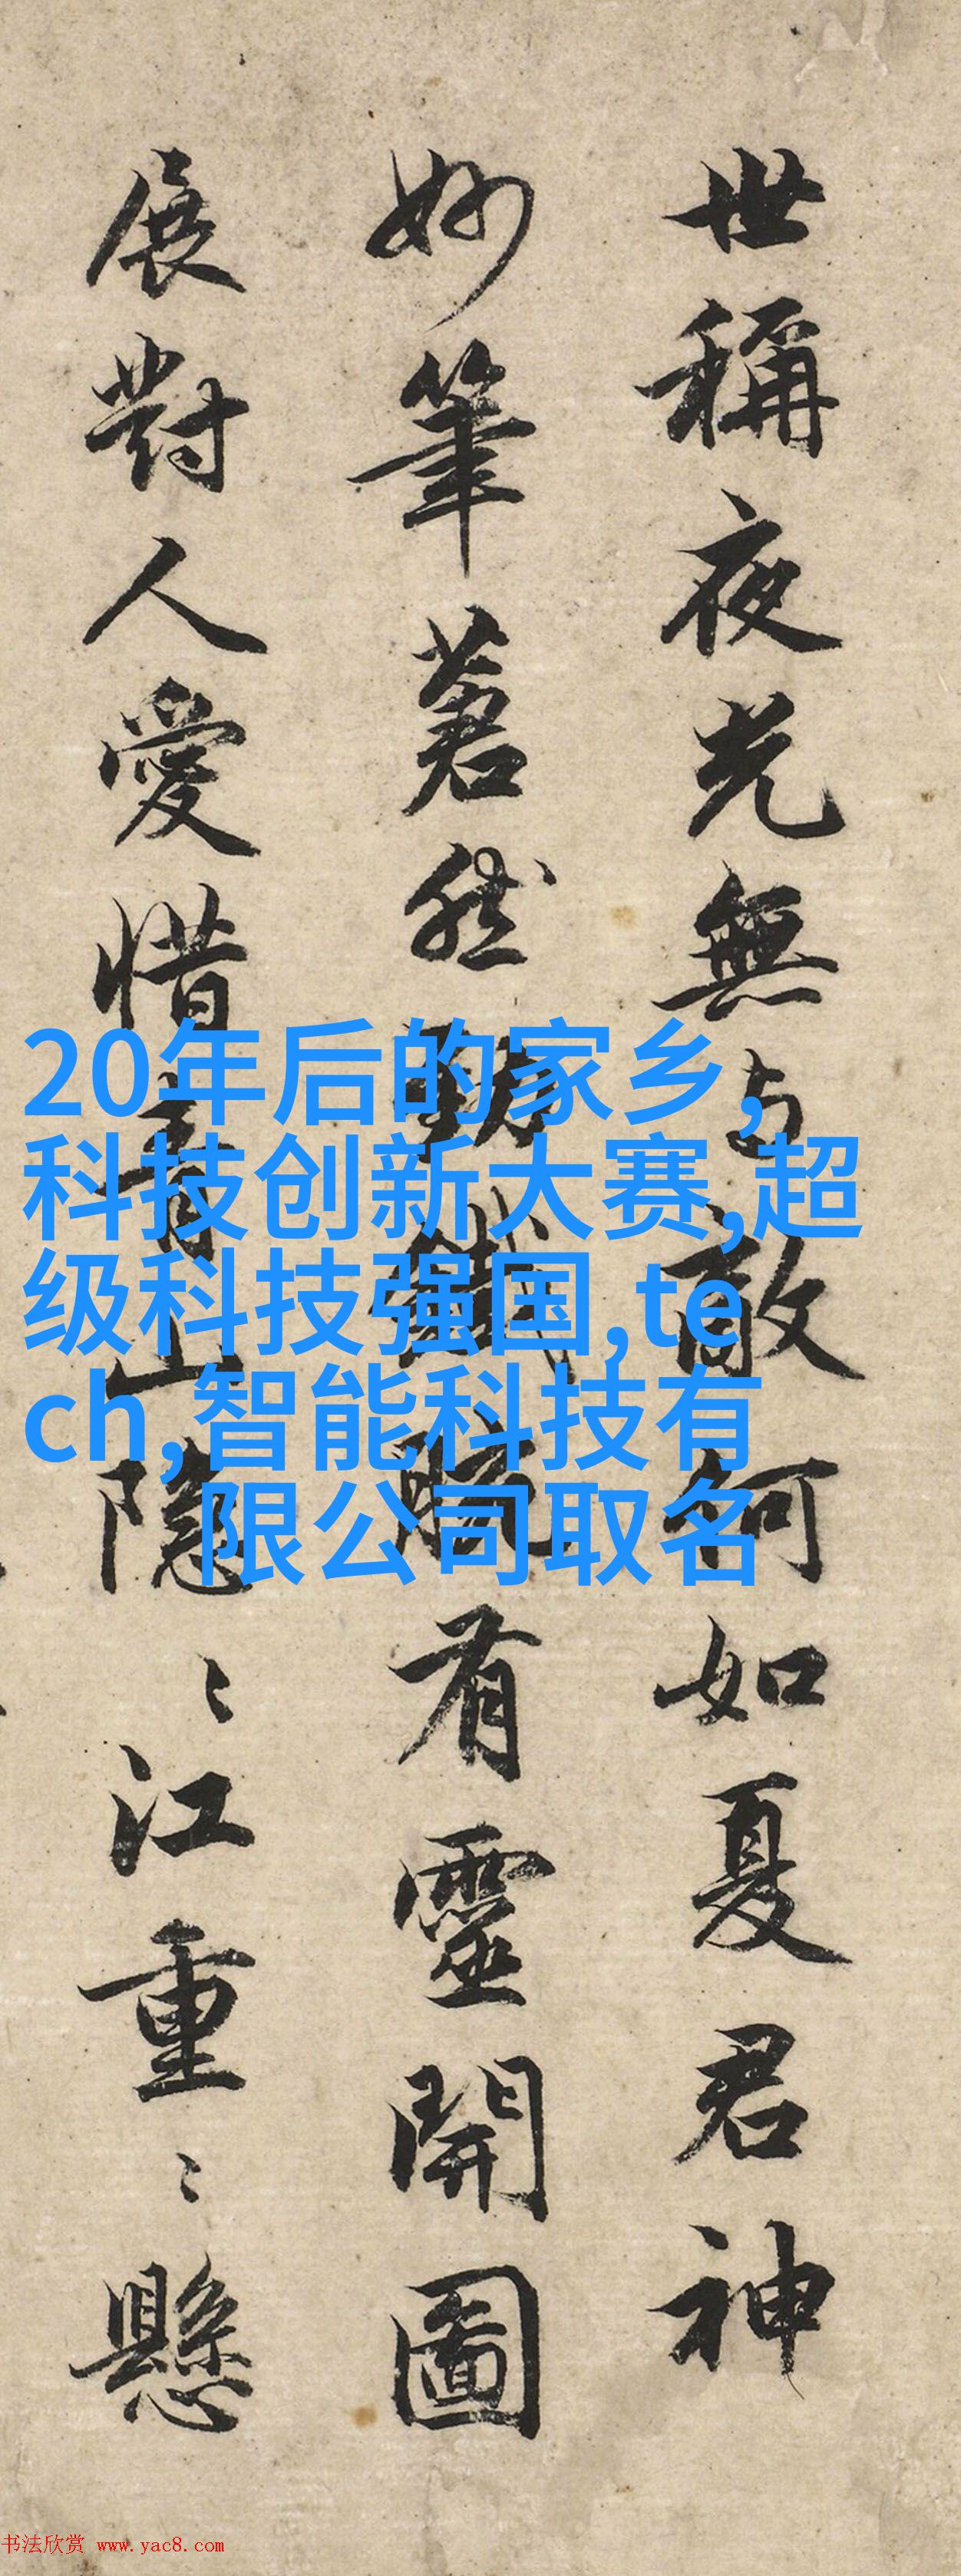 世稱夜光無与敵何如夏君神
妙筆然鐵有靈開圖
展對人愛惜青山隱〻江重〻懸
20年后的家乡,
科技创新大赛,超
级科技强国,te
ch,智能科技有
限公司取名
书法欣赏 www.yac8.com